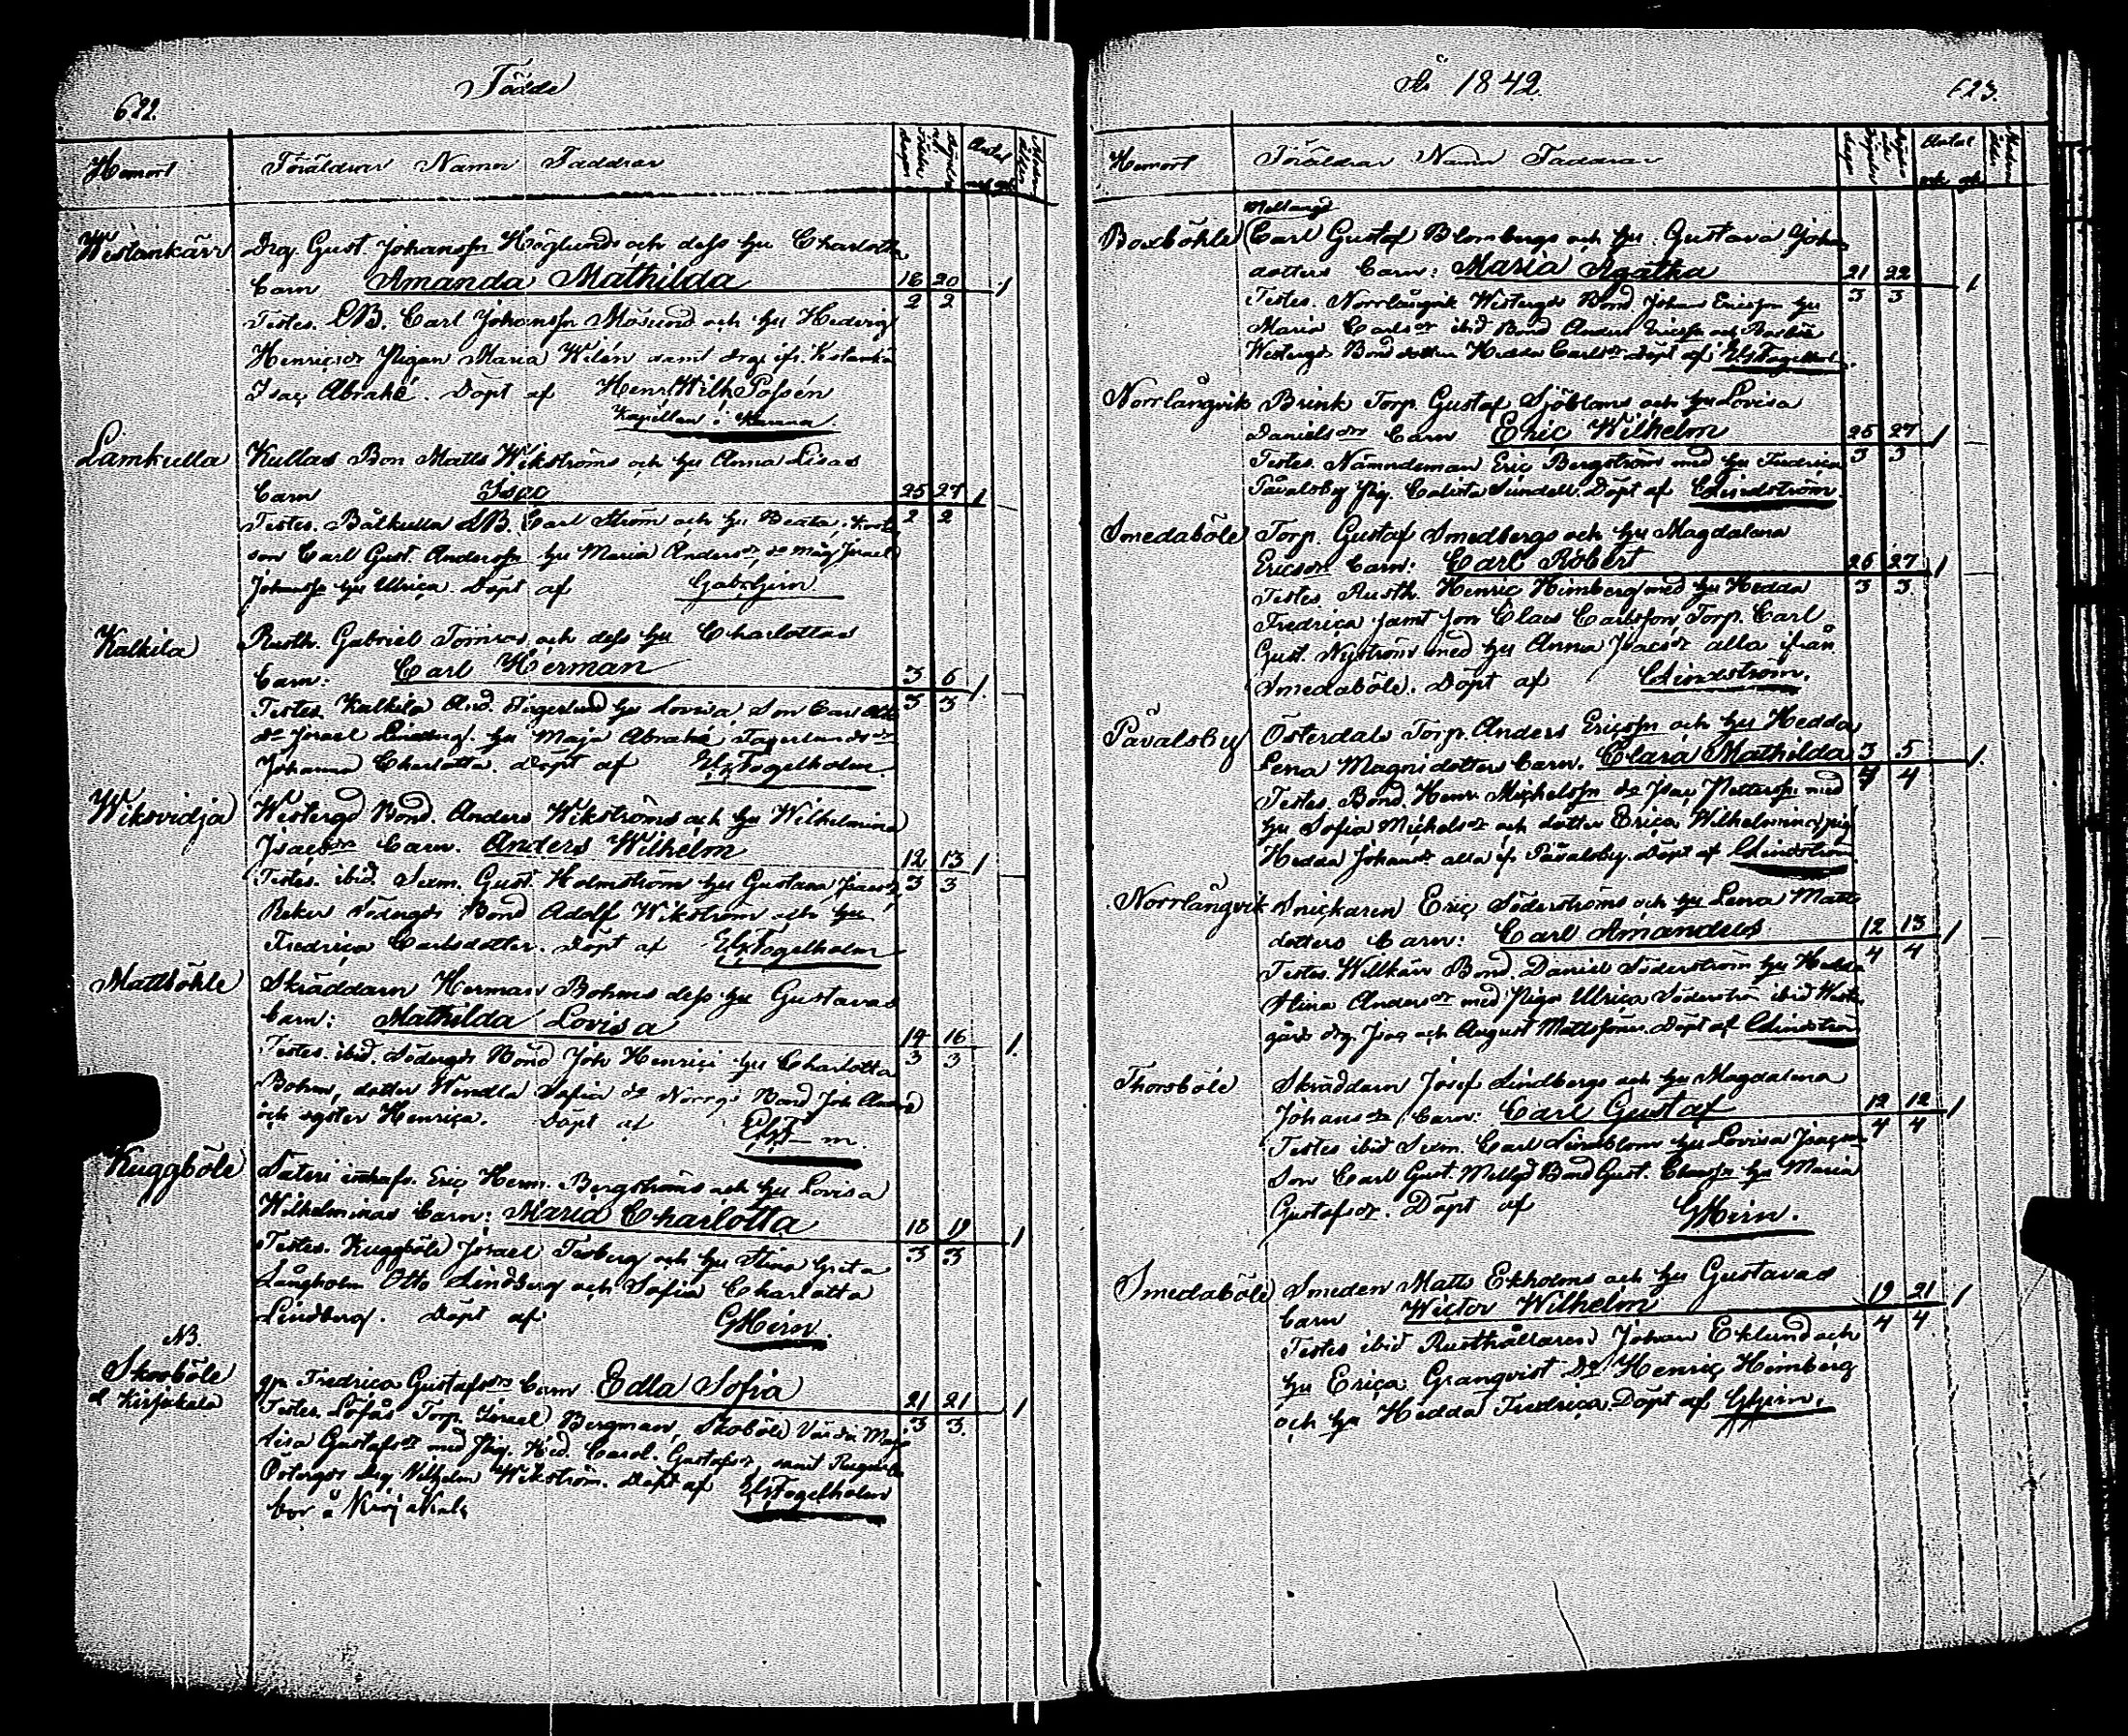 622.
Födde
Hemort
Föräldrar Namn Faddrar
Antal
Westankärr
Drg. Gust. Johanssn Höglunds och dess hu Charlotta
barn Amanda Mathilda 16 20 1
2 2
Testes. LB. Carl Johanssn Mösund och hu Hedvig
Henricsdr Pigan Maria Wilén samt drg. ifr.
Isac Abrahé. Döpt af Henr. Wilh. Possén
Kapellan i Karuna
Lamkulla
Kullas Bon Matts Wikströms och hu Anna Lisas
barn Isac 25 27 1
2 2
Testes. Bålkulla LB. Carl Ström och hu Beata,
son Carl Gust. Anderssn hu Maria Andersdr, do måg Israel
Johanssn hu Ulrica. Döpt af Gab. Hirn
Kalkila
Rusth. Gabriel Törnros och dess hu Charlottas
barn: Carl Herman 3 6 1.
3 3
Testes. Kalkila And. Fagerlund hu Lovisa, Son Carl
do Israel Lindberg. hu Maja Abrahé, Fagerlunds dr
Johanna Charlotta. Döpt af Elz Fogelholm.
Wiksvidja
Westergd Bond. Anders Wikströms och hu Wilhelmina
Isacsdrs barn. Anders Wilhelm 12 13 1
3 3
Testes. ibid. Sexm. Gust. Holmström hu Gustava Isacsdr,
Reker Södergds Bond Adolf Wikström och hu
Fredrica Carlsdotter. Döpt af Elz Fogelholm
Mattböhle
Skräddarn Herman Bohms dess hu Gustavas
barn: Mathilda Lovisa 14 16 1.
3 3
Testes. ibid. Södergds Bond Joh Henrici hu Charlotta
Bohm, dotter Wendla Sofia do Norrgs Bond Joh
och syster Henrica. Döpt af ElzF—m.
Kuggböle
Säteri innhafv. Eric Herm. Bergströms och hu Lovisa
Wilhelminas barn: Maria Charlotta 18 19 1
3 3
Testes. Kuggböle Israel Forberg och hu Stina Greta
Långholm Otto Lindberg och Sofia Charlotta
Lindberg. Döpt af GHirn.
NB.
Skoböle
al Kirjakala
qp Fredrica Gustafsdrs barn Edla Sofia 21 21 1
3 3.
Testes. Löfås Torp. Israel Bergman, Skoböle Maja
Lisa Gustafsdr med Pig. Hed. Carol. Gustafsdr, samt
Östergds drg Wilhelm Wikström. Döpt af Elz Fogelholm
bor å Kirjakala
År 1842.
623.
Hemort
Föräldrar Namn Faddrar
Antal
Mellangd
Boxböhle
Carl Gustaf Blombergs och hu. Gustava Johans
dotters barn: Maria Agatha 21 22 1
3 3
Testes. Norrlångvik Westergds Bond Johan Ericssn hu
Maria Carlsdr ibid Bond Anders Ericssn och
Westergds Bond dotter Hedda Carlsdr Döpt af Elz Fogelhol.
Norrlångvik
Brink Torp. Gustaf Sjöbloms och hu Lovisa
Danielsdrs barn Eric Wilhelm 25 27 1
3 3
Testes. Nämndeman Eric Bergström med hu Fredrica
Påvalsby Pig. Calista Sundell. Döpt af CLindström.
Smedaböle
Torp. Gustaf Smedbergs och hu Magdalena
Ericsdrs barn: Carl Robert 26 27 1
3 3
Testes. Rusth. Henric Heimberg med hu Hedda
Fredrica samt son Claes Carlsson, Torp. Carl
Gust. Nyström med hu Anna Isacsdr alla ifrån
Smedaböle. Döpt af CLindström.
Påvalsby
Österdals Torp. Anders Ericssn och hu Hedda
Lena Magnidotters barn. Clara Mathilda 3 5 1.
4 4
Testes. Bond. Henr. Michelssn do Isac Petterssn med
hu Sofia Michelsdr och dotter Erica Wilhelmina, pig
Hedda Johansdr alla if. Påvalsby. Döpt af CLindström.
Norrlångvik
Snickaren Eric Söderströms och hu Lena Matts
dotters barn: Carl Amandus 12 13 1
4 4
Testes. Willkärr Bond. Daniel Söderström hu Hedda
Stina Andersdr med Piga Ulrica Söderström ibid Wester
gårds drg. Isac och August Mattssöner. Döpt af CLindström
Thorsböle
Skräddarn Josef Lindbergs och hu Magdalena
Johansdrs barn: Carl Gustaf 12 12 1
4 4
Testes ibid Sexm. Carl Lindblom hu Lovisa Isacsdr
Son Carl Gust. Mellgd Bond Gust. Claessn hu Maria
Gustafsdr. Döpt af GHirn.
Smedaböle
Smeden Matts Ekholms och hu Gustavas
barn Wictor Wilhelm 19 21 1
4 4
Testes ibid Rusthållaren Johan Eklund och
hu Erica Granqvist do Henric Heimberg
och hu Hedda Fredrica Döpt af GHirn.